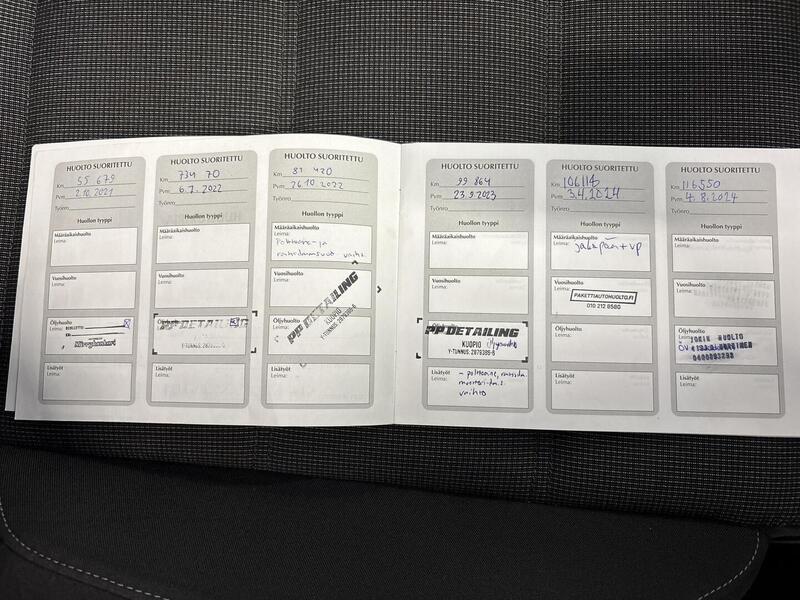 HUOLTO SUORITETTU
Km 55 679
Pvm 2.10.2021
Työnro
Huollon tyyppi
Määräaikaishuolto
Leima:
Vuosihuolto
Leima:
Öljyhuolto
Leima:
Lisätyöt
Leima:
HUOLTO SUORITETTU
Km 734 70
Pvm 6.7.2022
Työnro
Huollon tyyppi
Määräaikaishuolto
Leima:
Vuosihuolto
Leima:
Öljyhuolto
PP DETAILING
Lisätyöt
Leima:
HUOLTO SUORITETTU
Km 87 420
Pvm 26.10.2022
Työnro
Huollon tyyppi
Määräaikaishuolto
Leima:
Polttoaine- ja
vaihto
Vuosihuolto
Leima:
PP DETAILING
KUOPIO
Y-TUNNUS: 2879389-6
Öljyhuolto
Leima:
Lisätyöt
Leima:
HUOLTO SUORITETTU
Km 99 864
Pvm 23.9.2023
Työnro
Huollon tyyppi
Määräaikaishuolto
Leima:
Vuosihuolto
Leima:
PP DETAILING
KUOPIO Öljynvaihto
Y-TUNNUS: 2879389-6
Lisätyöt
Leima:
- polttoaine, raitisilma,
vaihto
HUOLTO SUORITETTU
Km 106118
Pvm 3.4.2024
Työnro
Huollon tyyppi
Määräaikaishuolto
Leima:
jakopää + vp
Vuosihuolto
Leima:
PAKETTIAUTOHUOLTO.FI
010 212 8580
Öljyhuolto
Leima:
Lisätyöt
Leima:
HUOLTO SUORITETTU
Km 116550
Pvm 4.8.2024
Työnro
Huollon tyyppi
Määräaikaishuolto
Leima:
Vuosihuolto
Leima:
Öljyhuolto
Leima:
HUOLTO
ÖV
0400893293
Lisätyöt
Leima: